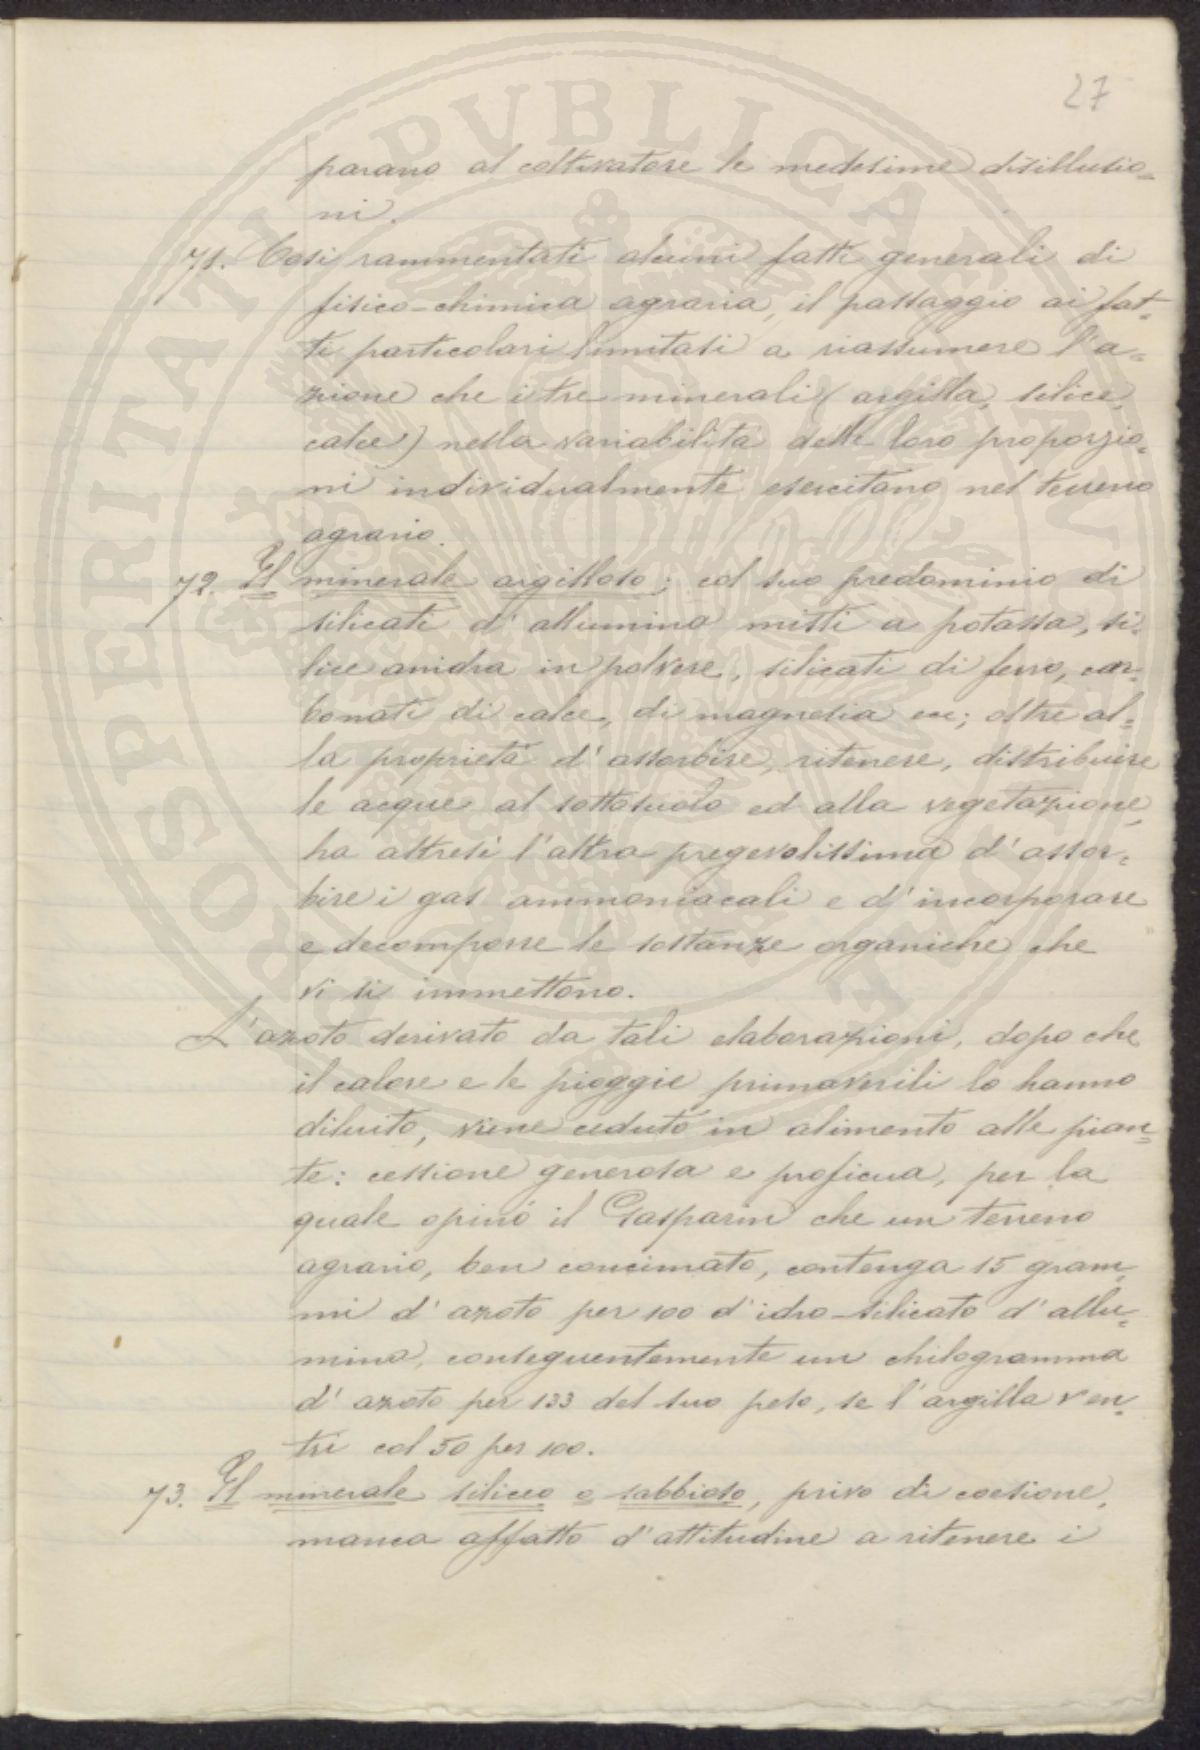 27
parano al coltivatore le medesime disillusio=
ni.
71. Così rammentati alcuni fatti generali di
fisico-chimica agraria, il passaggio ai fat=
ti particolari limitasi a riassumere l'a=
zione che i tre minerali (argilla, silice,
calce) nella variabilità delle loro proporzio=
ni individualmente esercitano nel terreno
agrario.
72. Il minerale argilloso; col suo predominio di
silicati d'allumina misti a potassa, si=
lice anidra in polvere, silicati di ferro, car=
bonati di calce, di magnesia ecc; oltre al=
la proprietà d'assorbire, ritenere, distribuire
le acque al sottosuolo ed alla vegetazione,
ha altresì l'altra pregevolissima d'assor=
bire i gas ammoniacali e d'incorporare
e decomporre le sostanze organiche che
vi si immettono.
L'azoto derivato da tali elaborazioni, dopo che
il calore e le pioggie primaverili lo hanno
diluito, viene ceduto in alimento alle pian=
te: cessione generosa e proficua, per la
quale opinò il Gasparin che un terreno
agrario, ben concimato, contenga 15 gram=
mi d'azoto per 100 d'idro-silicato d'allu=
mina, conseguentemente un chilogramma
d'azoto per 133 del suo peso, se l'argilla v'en=
tri col 50 per 100.
73. Il minerale siliceo o sabbioso, privo di coesione,
manca affatto d'attitudine a ritenere i
PROSPERITATI PVBLICAE